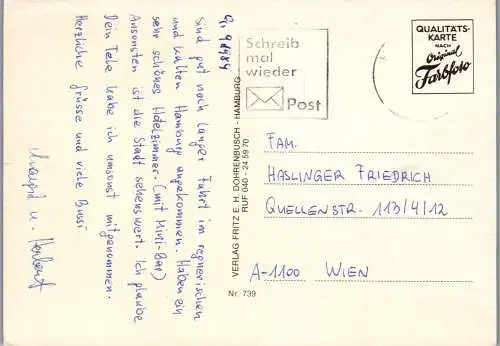 9.9.1984
Sind gut nach langer Fahrt im regnerischen
und kalten Hamburg angekommen. Haben ein
sehr schönes Hotelzimmer (mit Mini-Bar)
Ansonsten ist die Stadt sehenswert. Ich glaube
Dein Tele habe ich umsonst mitgenommen.
Herzliche Grüsse und viele Bussi
u. Herbert
VERLAG FRITZ E. H. DOHRENBUSCH - HAMBURG
RUF 040 - 24 59 70
Nr. 739
Schreib
mal
wieder
Post
QUALITÄTS-
KARTE
NACH
Original
Farbfoto
FAM.
HASLINGER FRIEDRICH
QUELLENSTR. 113/4/12
A-1100 WIEN